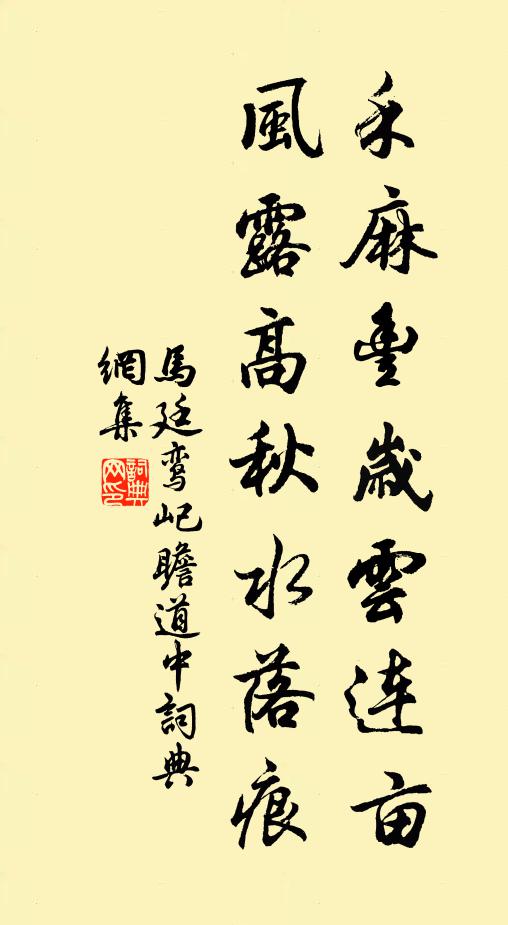 禾麻豊歲雲連亩
風露高秋水落痕
馬廷鸾屺瞻道中詞典
網集
詞典网印